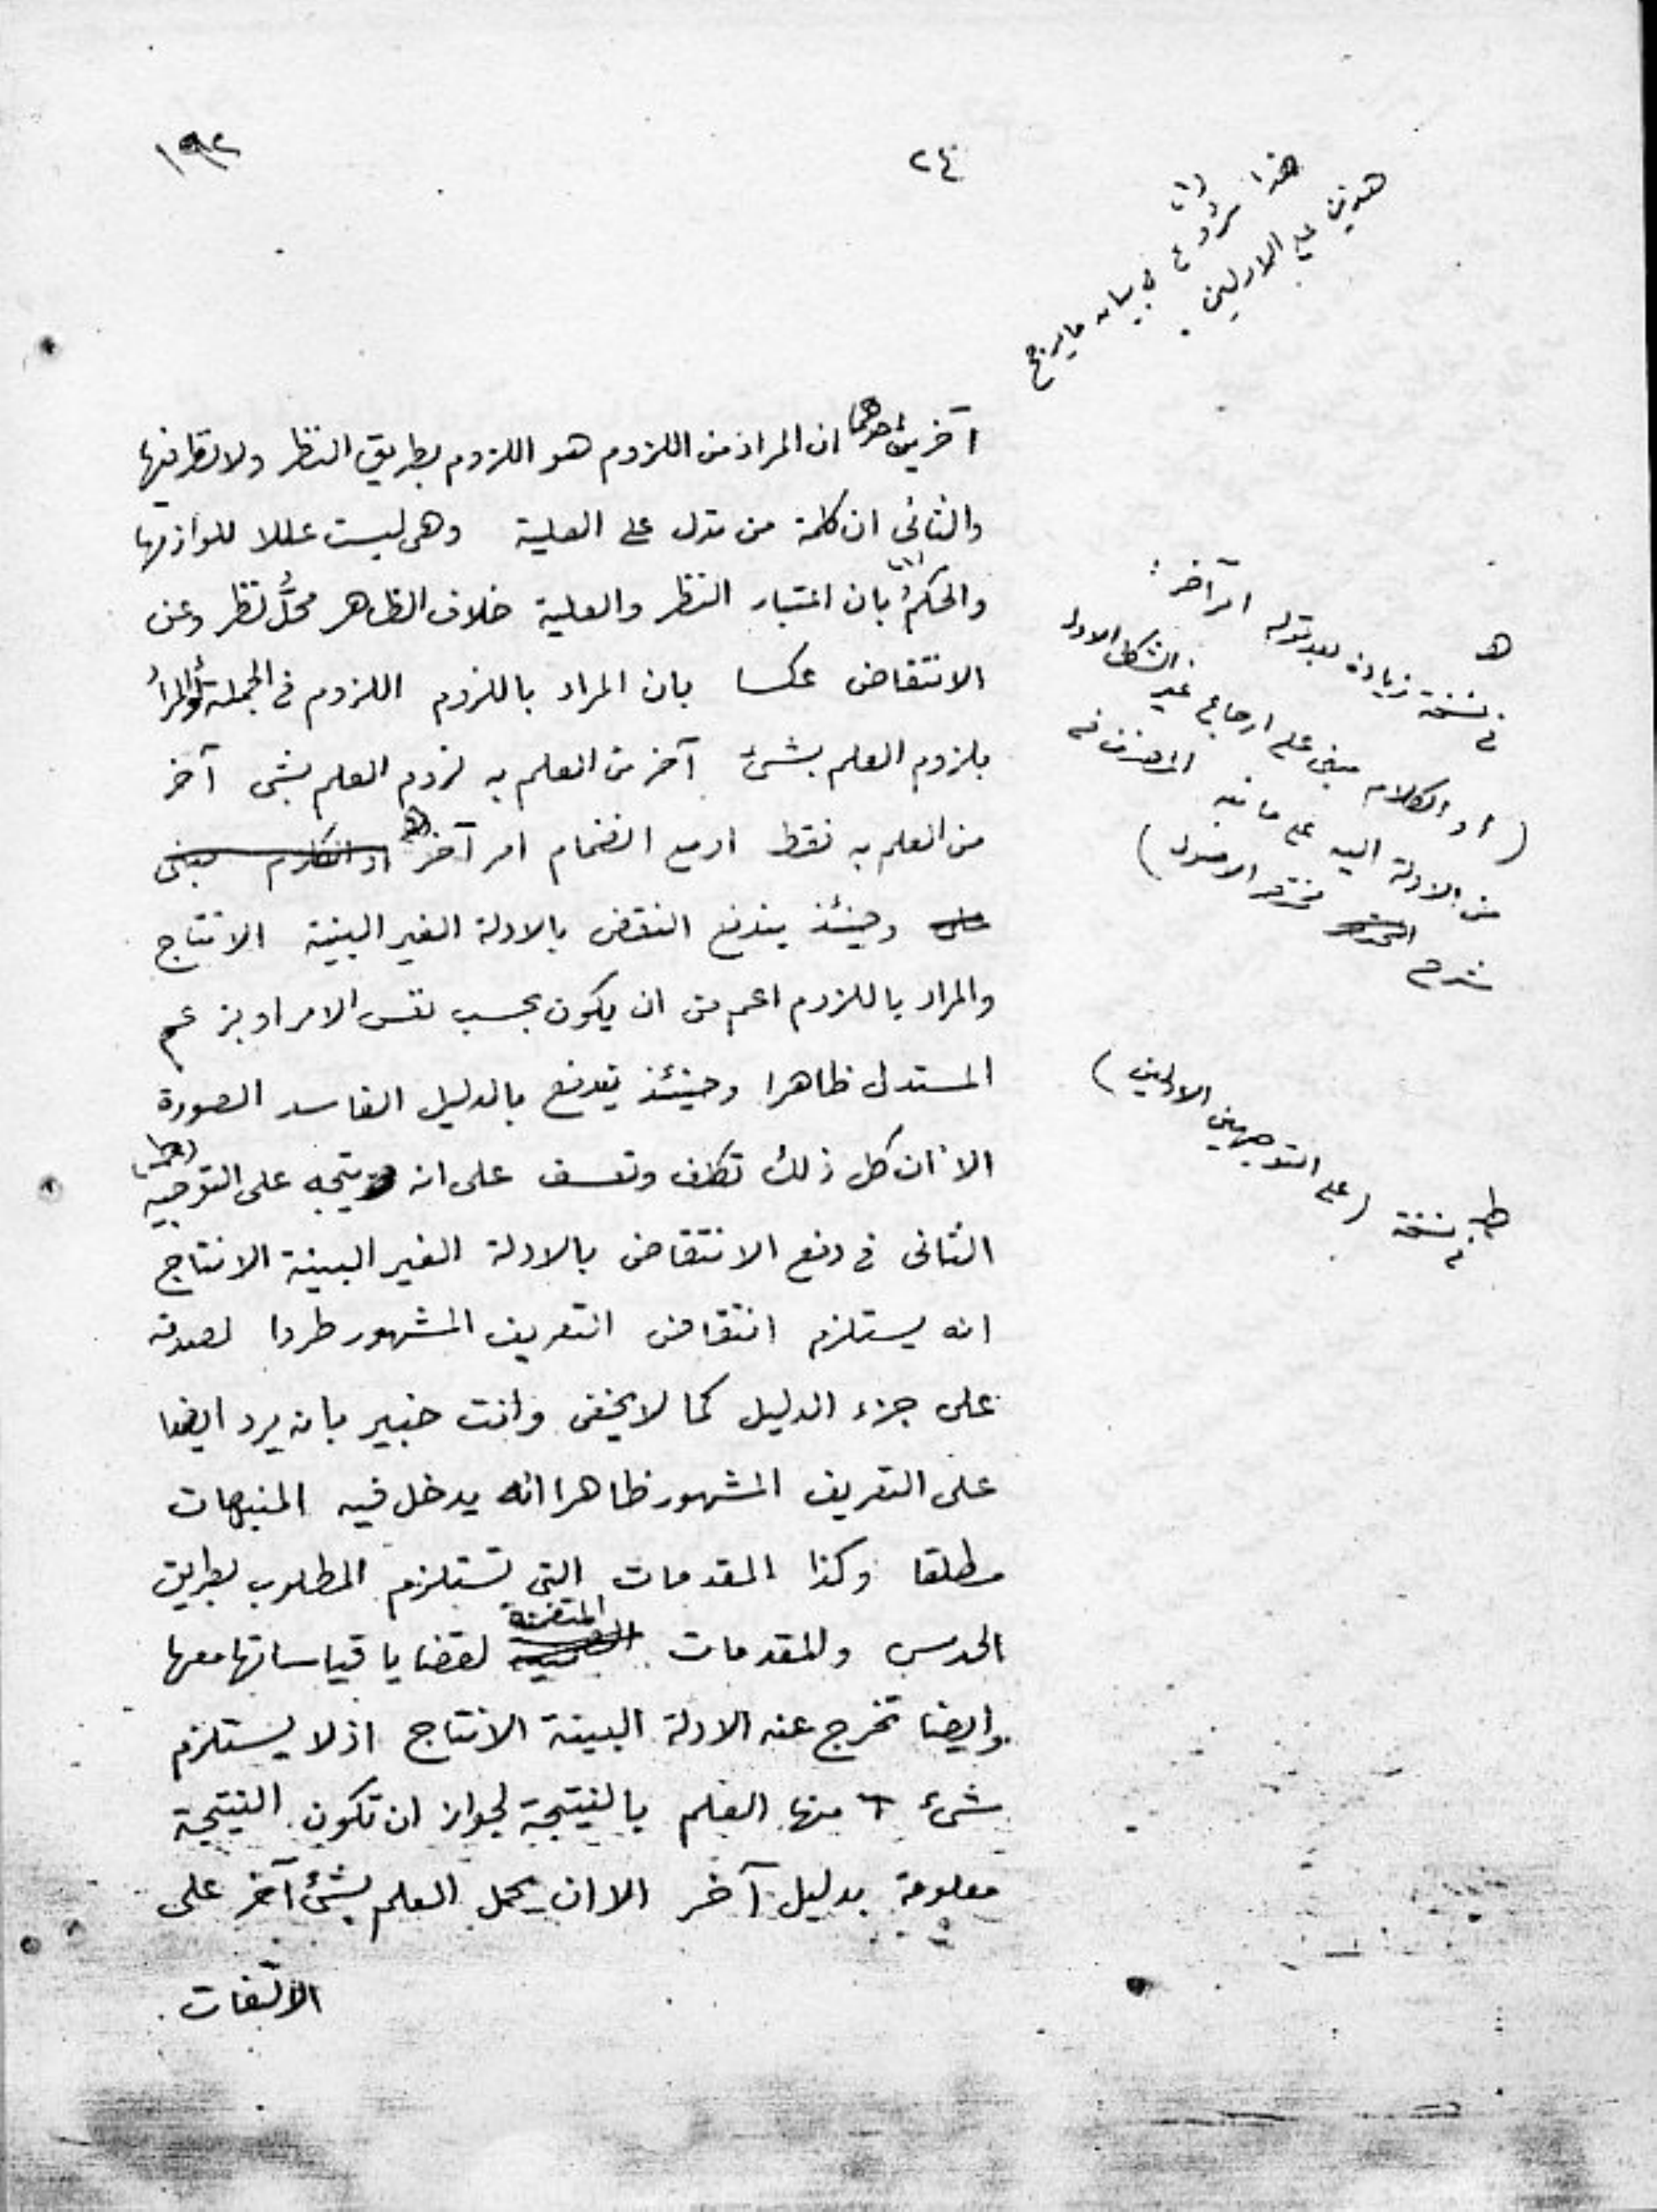 ١٩٢
٢٤
(١)
هذا شروع في بيان ما يرجح
هذين على الاولين .
آخرين احدهما ان المراد من اللزوم هو اللزوم بطريق النظر ولا نظر فيها
والثانى ان كلمة من تدل على العلية وهى ليست عللا للوازمها
والحكم (١) بان اعتبار النظر والعلية خلاف الظاهر محلُّ نظر وعن
الانتقاض عكسا بان المراد باللزوم اللزوم فى الجملة والمراد
بلزوم العلم بشئ آخر من العلم به لزوم العلم بشئ آخر
من العلم به فقط او مع انضمام امر آخر (ه) او الكلام مبنى
على وحينئذ يندفع النقض بالادلة الغير البينة الانتاج
والمراد باللزوم اعم من ان يكون بحسب نفس الامر او بزعم
المستدل ظاهرا وحينئذ يندفع بالدليل الفاسد الصورة
الا ان كل ذلك تكلف وتعسف على انه يتجه على التوجيه (ط)
الثانى فى دفع الانتقاض بالادلة الغير البينة الانتاج
انه يستلزم انتقاض التعريف المشهور طردا لصدقه
على جزء الدليل كما لا يخفى وانت خبير بانه يرد ايضا
على التعريف المشهور ظاهرا انه يدخل فيه المنبهات
مطلقا وكذا المقدمات التى تستلزم المطلوب بطريق
الحدس والمقدمات المتضمنة لقضايا قياساتها معها
وايضا تخرج عنه الادلة البينة الانتاج اذ لا يستلزم
شئ منها العلم بالنتيجة لجواز ان تكون النتيجة
معلومة بدليل آخر الا ان يحمل العلم بشئ آخر على
الالتفات .
ه
فى نسخة زيادة بعد قوله امر آخر :
( او الكلام مبنى على ارجاع غير الشكل الاول
من الادلة اليه على ما نبه المصنف فى
شرح مختصر الاصول )
ط فى نسخة ( على التوجيهين الاولين )